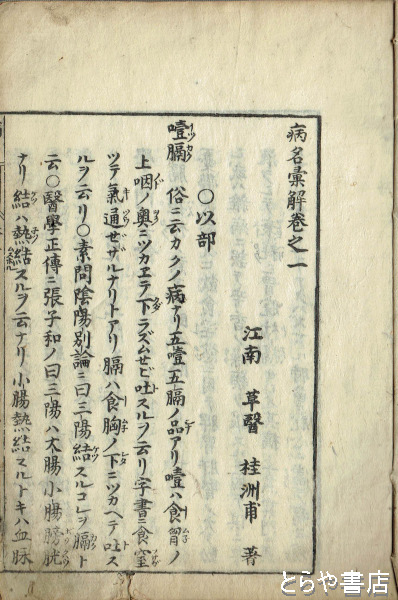 病名彙解卷之一
江南 草醫 桂洲甫 著
○以部
噎膈 俗ニ云カクノ病ナリ五噎五膈ノ品アリ噎ハ食胷ノ
上咽ノ奥ニツカエテ下ラズムせビ吐スルヲ云リ字書ニ食窒
ツテ氣通せザルナリトアリ膈ハ食胸ノ下ニツカヘテ吐ス
ルヲ云リ○素問陰陽別論ニ曰三陽結スルコレヲ膈ト
云○醫學正傳ニ張子和ノ曰三陽ハ大腸小腸膀胱
ナリ結ハ熱結スルヲ云ナリ小腸熱結スルトキハ血脉
とらや書店